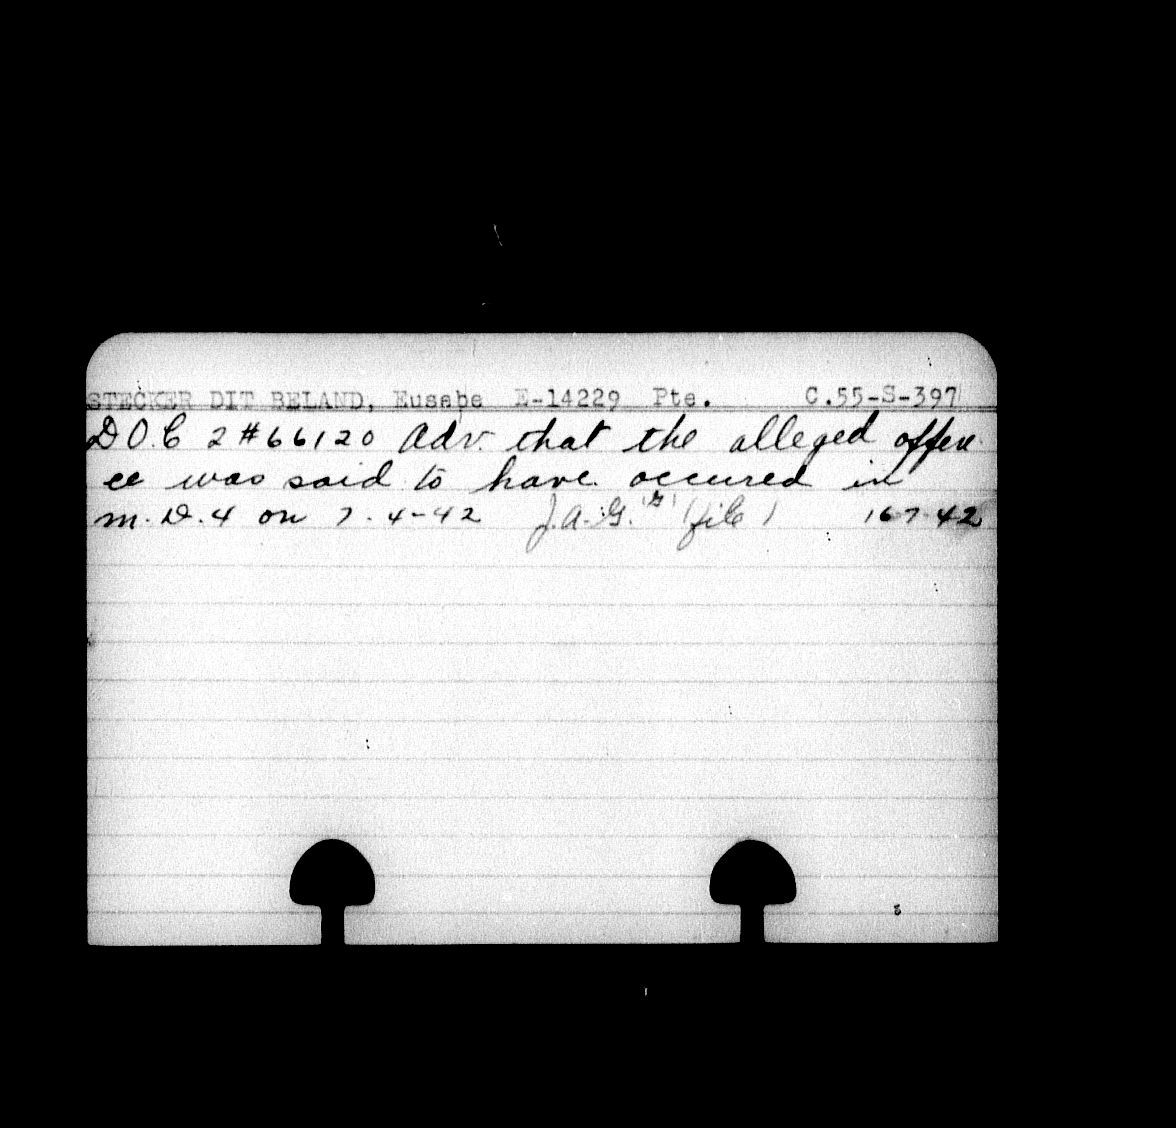 STECKER DIT BELAND, Eusebe E-14229 Pte. C.55-S-397
D.O.C 2 #66120 Adv. that the alleged offen
ce was said to have occured in
M.D.4 on 7-4-42 J.A.G. "G" (file) 16 7 42